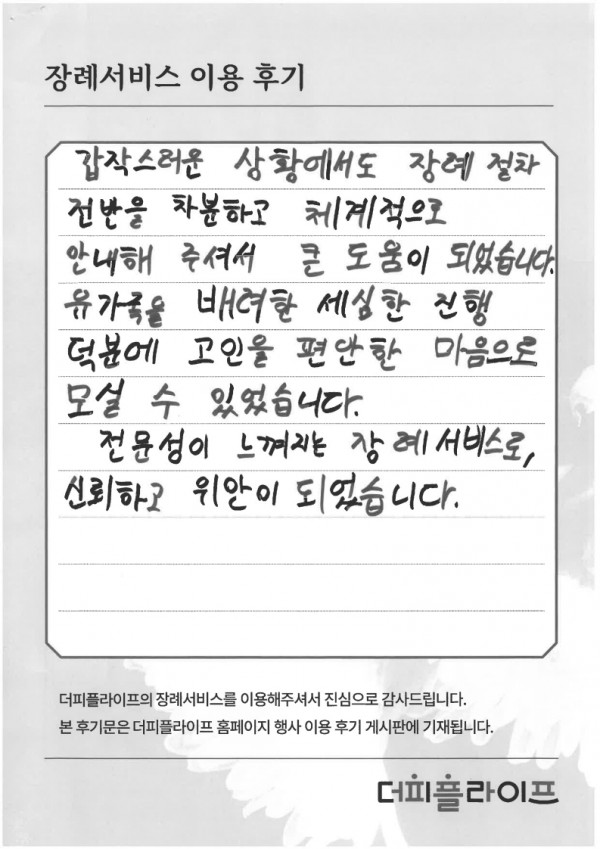 장례서비스 이용 후기
갑작스러운 상황에서도 장례 절차
전반을 차분하고 체계적으로
안내해 주셔서 큰 도움이 되었습니다.
유가족을 배려한 세심한 진행
덕분에 고인을 편안한 마음으로
모실 수 있었습니다.
전문성이 느껴지는 장례서비스로,
신뢰하고 위안이 되었습니다.
더피플라이프의 장례서비스를 이용해주셔서 진심으로 감사드립니다.
본 후기문은 더피플라이프 홈페이지 행사 이용 후기 게시판에 기재됩니다.
더피플라이프